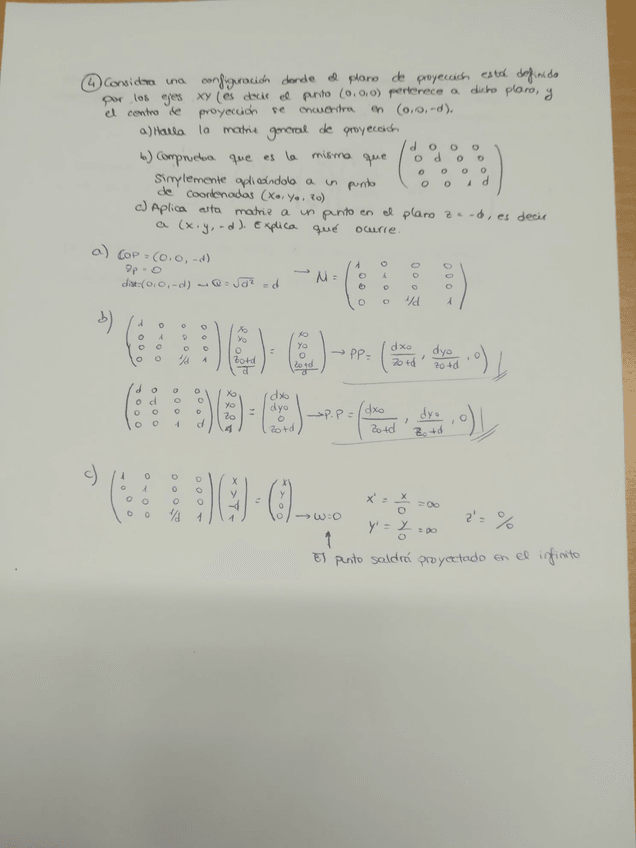 ④ Considera una configuración donde el plano de proyección está definido
por los ejes XY (es decir el punto (0,0,0) pertenece a dicho plano, y
el centro de proyección se encuentra en (0,0,-d).
a) Halla la matriz general de proyección
b) Comprueba que es la misma que
Simplemente aplicándola a un punto
de coordenadas (x0, y0, z0)
d 0 0 0
0 d 0 0
0 0 0 0
0 0 1 d
c) Aplica esta matriz a un punto en el plano z = -d, es decir
a (x, y, -d). Explica qué ocurre.
a) COP = (0,0,-d)
Zp = 0
dist(0,0,-d) → Q = √d² = d
→ M =
1 0 0 0
0 1 0 0
0 0 0 0
0 0 1/d 1
b)
1 0 0 0 x0 x0
0 1 0 0 y0 = y0 → PP = (dx0/z0+d, dy0/z0+d, 0)
0 0 0 0 0 0
0 0 1/d 1 z0+d/d z0+d/d
d 0 0 0 x0 dx0
0 d 0 0 y0 = dy0 → P.P = (dx0/z0+d, dy0/z0+d, 0)
0 0 0 0 z0 0
0 0 1 d d z0+d
c)
1 0 0 0 x x
0 1 0 0 y = y
0 0 0 0 -d 0
0 0 1/d 1 1 0 → W=0
x' = x/0 = ∞
y' = y/0 = ∞
z' = 0/0
↑
El punto saldrá proyectado en el infinito